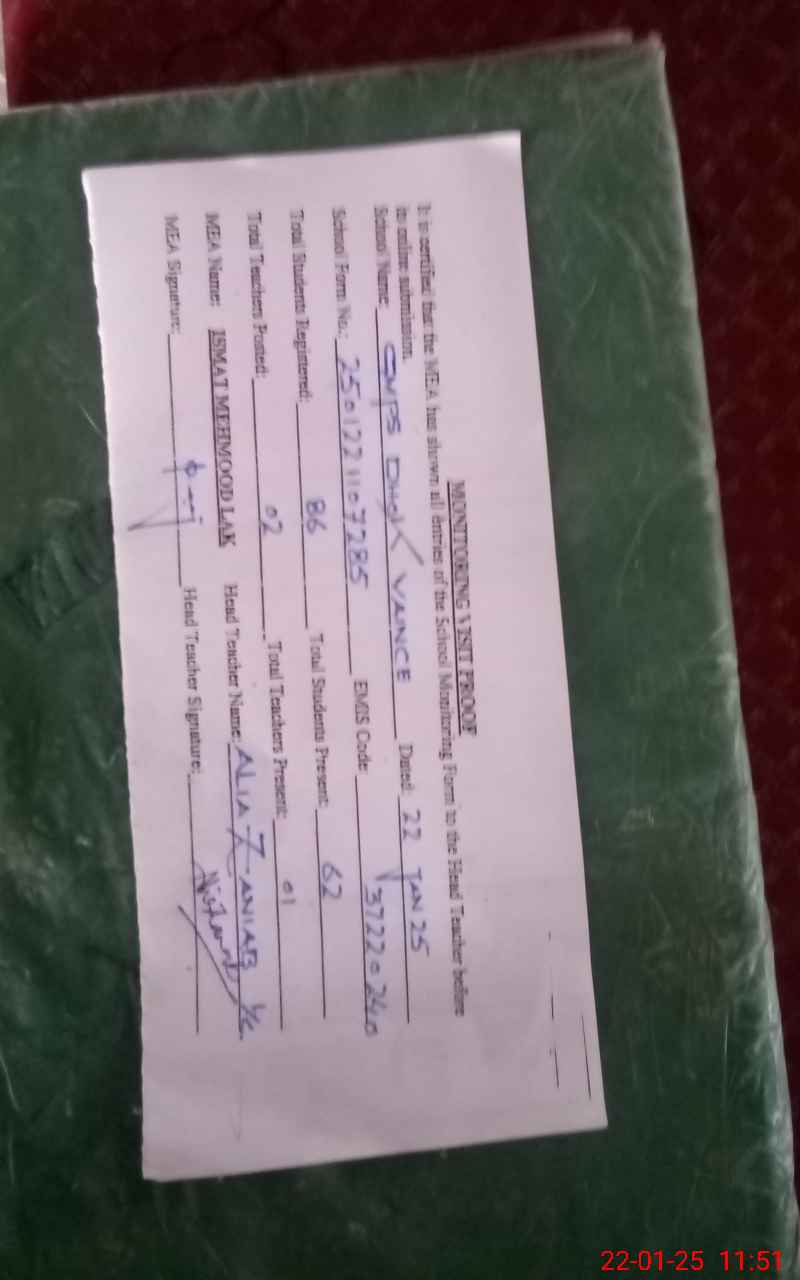 MONITORING VISIT PROOF
It is certified that the MEA has shown all entries of the School Monitoring Form to the Head Teacher before
its online submission.
School Name: GMPS DHOK VAINCE Dated 22 JAN 25
School Form No.: 2501221107285 EMIS Code: 37220240
Total Students Registered: 86 Total Students Present: 62
Total Teachers Posted: 02 Total Teachers Present: 01
MEA Name: ISMAT MEHMOOD LAK Head Teacher Name: ALIA ZANIAB
MEA Signature: Head Teacher Signature:
22-01-25 11:51